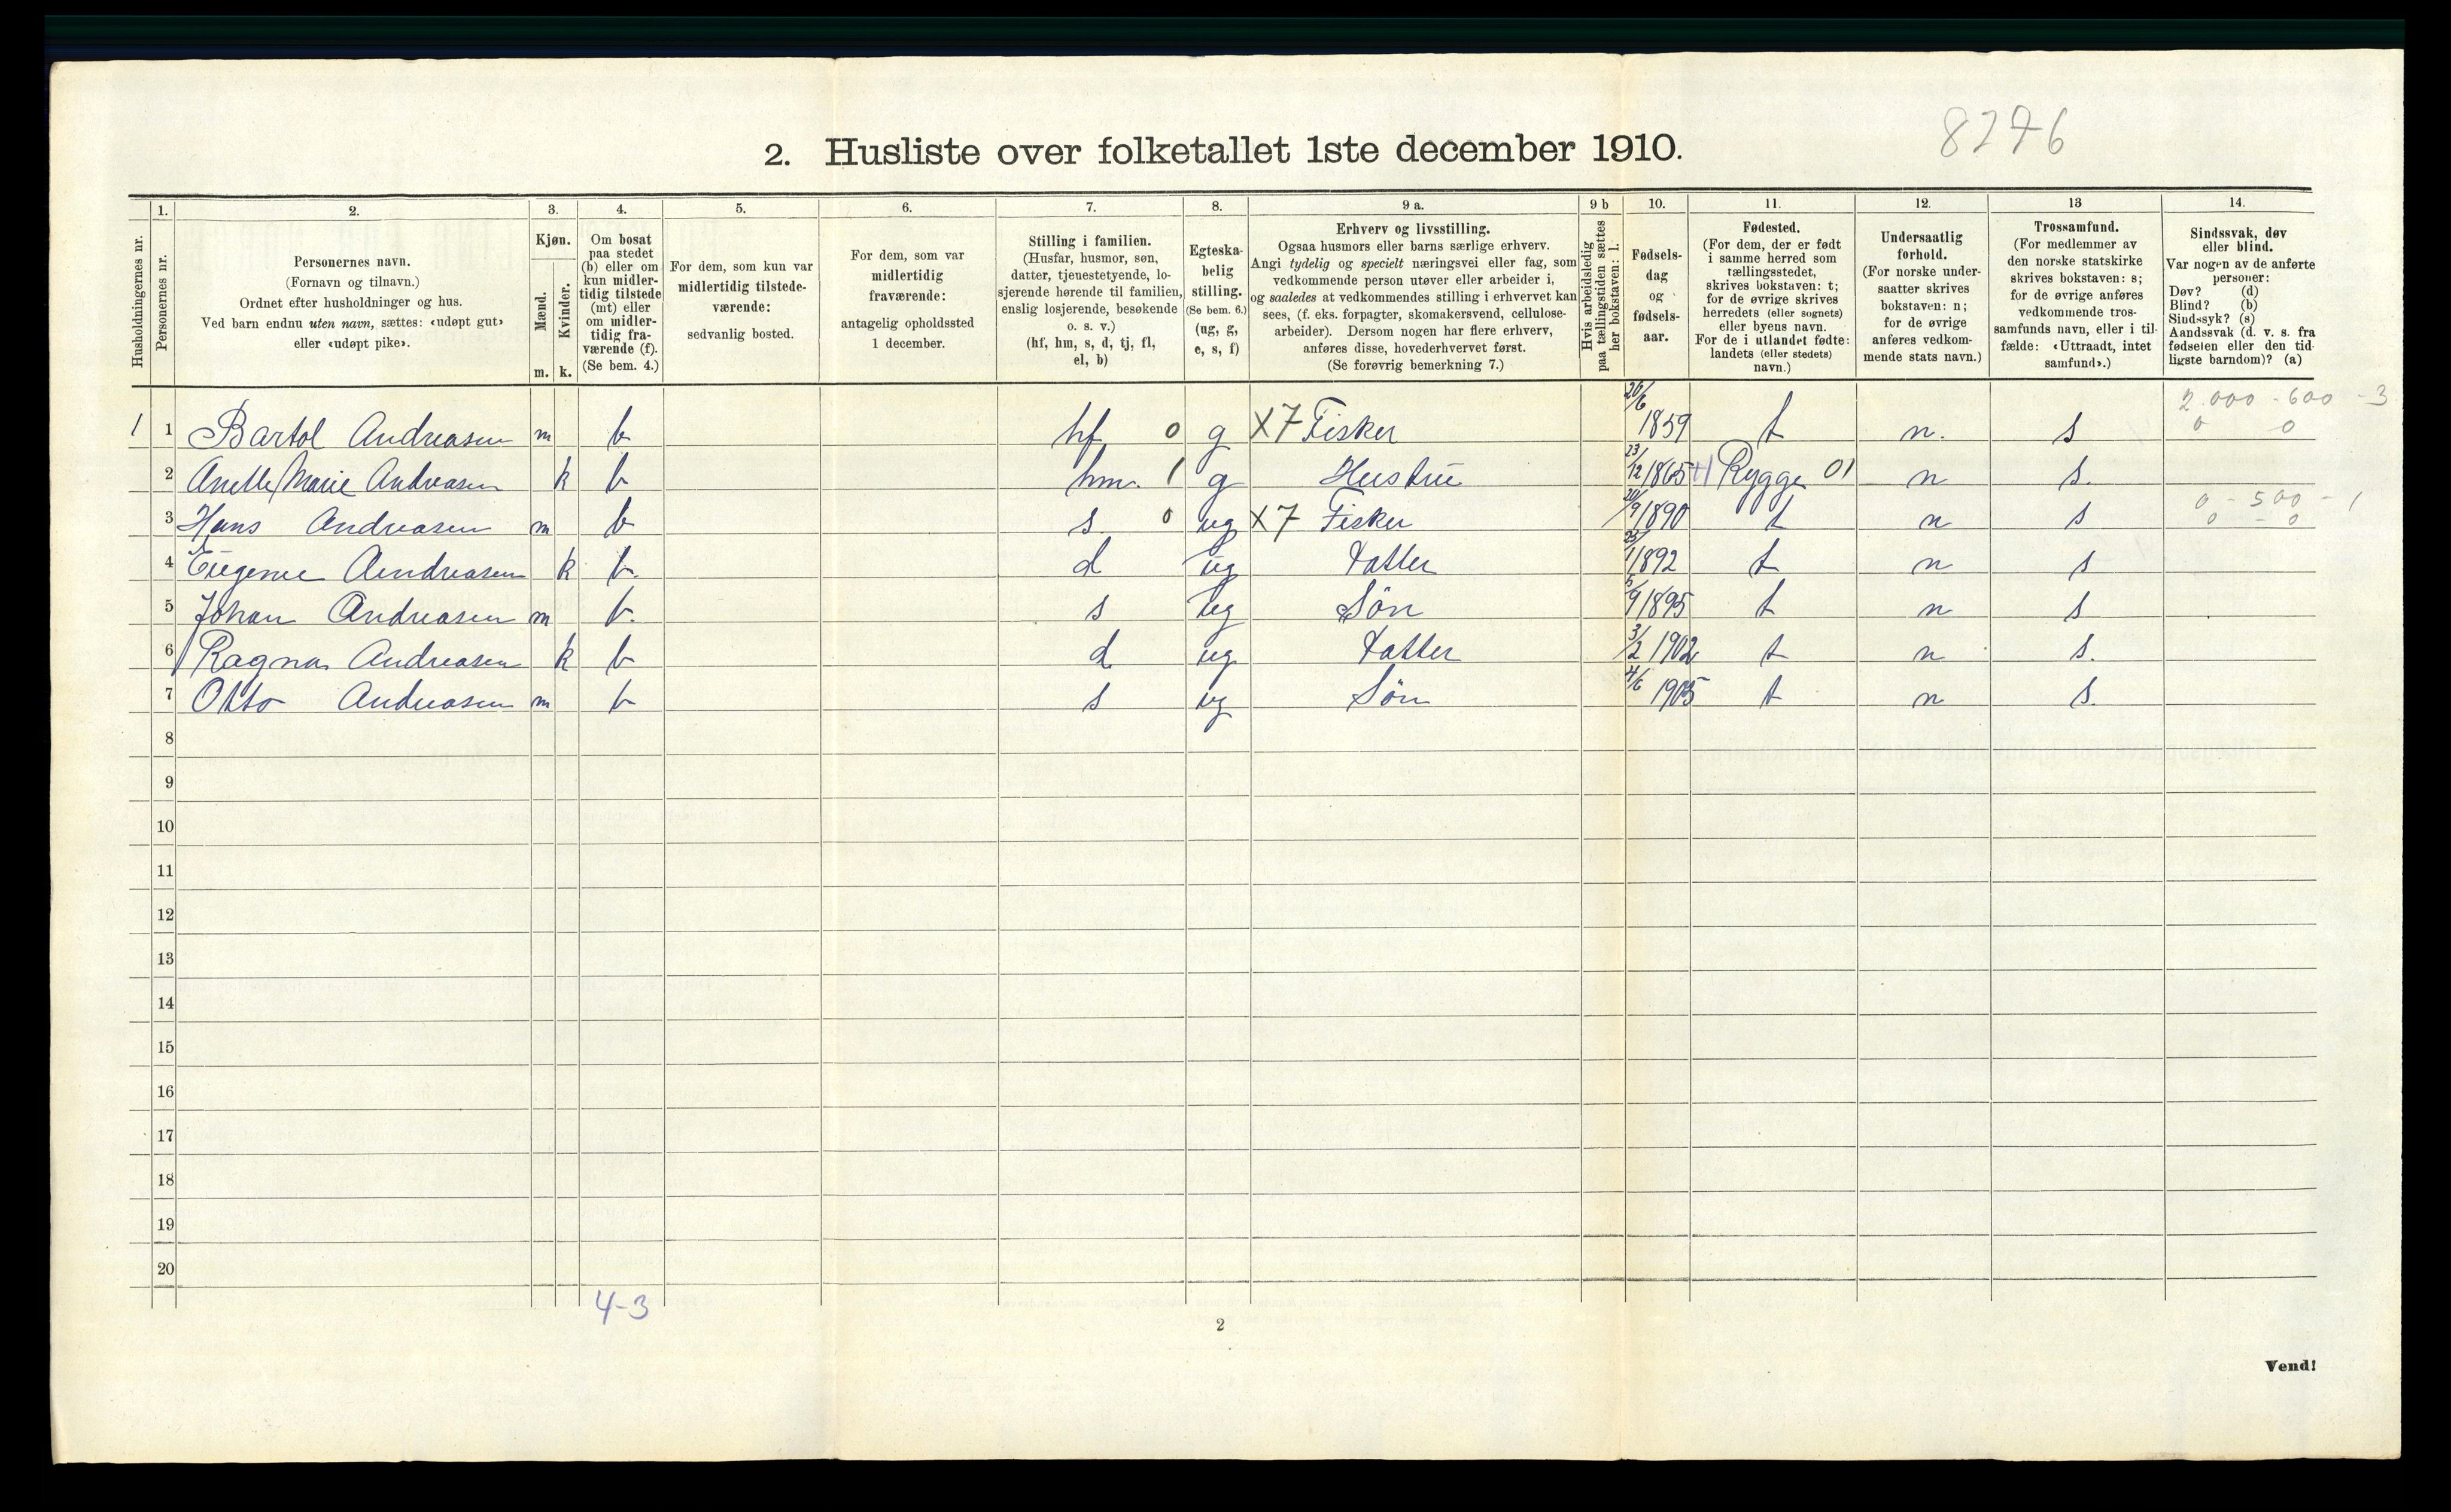 8276
2. Husliste over folketallet 1ste december 1910.
Husholdningernes nr.
1. Personernes nr.
2. Personernes navn.
(Fornavn og tilnavn.)
Ordnet efter husholdninger og hus.
Ved barn endnu uten navn, sættes: «udøpt gut»
eller «udøpt pike».
3. Kjøn.
Mænd. Kvinder.
m. k.
4. Om bosat
paa stedet
(b) eller om
kun midler-
tidig tilstede
(mt) eller
om midler-
tidig fra-
værende (f).
(Se bem. 4.)
5. For dem, som kun var
midlertidig tilstede-
værende:
sedvanlig bosted.
6. For dem, som var
midlertidig
fraværende:
antagelig opholdssted
1 december.
7. Stilling i familien.
(Husfar, husmor, søn,
datter, tjenestetyende, lo-
sjerende hørende til familien,
enslig losjerende, besøkende
o. s. v.)
(hf, hm, s, d, tj, fl,
el, b)
8. Egteska-
belig
stilling.
(Se bem. 6.)
(ug, g,
e, s, f)
9 a. Erhverv og livsstilling.
Ogsaa husmors eller barns særlige erhverv.
Angi tydelig og specielt næringsvei eller fag, som
vedkommende person utøver eller arbeider i,
og saaledes at vedkommendes stilling i erhvervet kan
sees, (f. eks. forpagter, skomakersvend, cellulose-
arbeider). Dersom nogen har flere erhverv,
anføres disse, hovederhvervet først.
(Se forøvrig bemerkning 7.)
9 b Hvis arbeidsledig
paa tællingstiden sættes
her bokstaven: l.
10. Fødsels-
dag
og
fødsels-
aar.
11. Fødested.
(For dem, der er født
i samme herred som
tællingsstedet,
skrives bokstaven: t;
for de øvrige skrives
herredets (eller sognets)
eller byens navn.
For de i utlandet fødte:
landets (eller stedets)
navn.)
12. Undersaatlig
forhold.
(For norske under-
saatter skrives
bokstaven: n;
for de øvrige
anføres vedkom-
mende stats navn.)
13 Trossamfund.
(For medlemmer av
den norske statskirke
skrives bokstaven: s;
for de øvrige anføres
vedkommende tros-
samfunds navn, eller i til-
fælde: «Uttraadt, intet
samfund».)
14. Sindssvak, døv
eller blind.
Var nogen av de anførte
personer:
Døv? (d)
Blind? (b)
Sindssyk? (s)
Aandssvak (d. v. s. fra
fødselen eller den tid-
ligste barndom)? (a)
1 1 Bartol Andreasen m b hf 0 g X7 Fisker 20/6 1859 t n. s 2.000 - 600 - 3 0 0
2 Anette Marie Andreasen k b hm. 1 g Hustru 23/12 1865 Rygge 01 n s.
3 Hans Andreasen m b s 0 ug X7 Fisker 20/9 1890 t n s 0 - 500 - 1 0 - 0
4 Eugenie Andreasen k b. d ug Datter 25/1 1892 t n s
5 Johan Andreasen m b. s ug Søn 5/9 1895 t n s
6 Ragna Andreasen k b d ug Datter 3/2 1902 t n s.
7 Otto Andreasen m b s ug Søn 4/6 1905 t n s.
8
9
10
11
12
13
14
15
16
17
18
19
20
4-3
2
Vend!